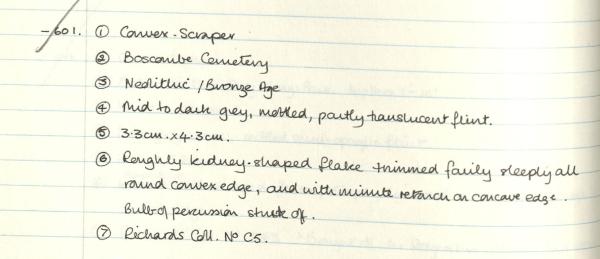 -601. ① Convex-Scraper
② Boscombe Cemetery
③ Neolithic / Bronze Age
④ Mid to dark grey, mottled, partly translucent flint.
⑤ 3.3cm. x 4.3cm.
⑥ Roughly kidney-shaped flake trimmed fairly steeply all
round convex edge, and with minute retouch on concave edge.
Bulb of percussion struck of.
⑦ Richards Coll. No C5.